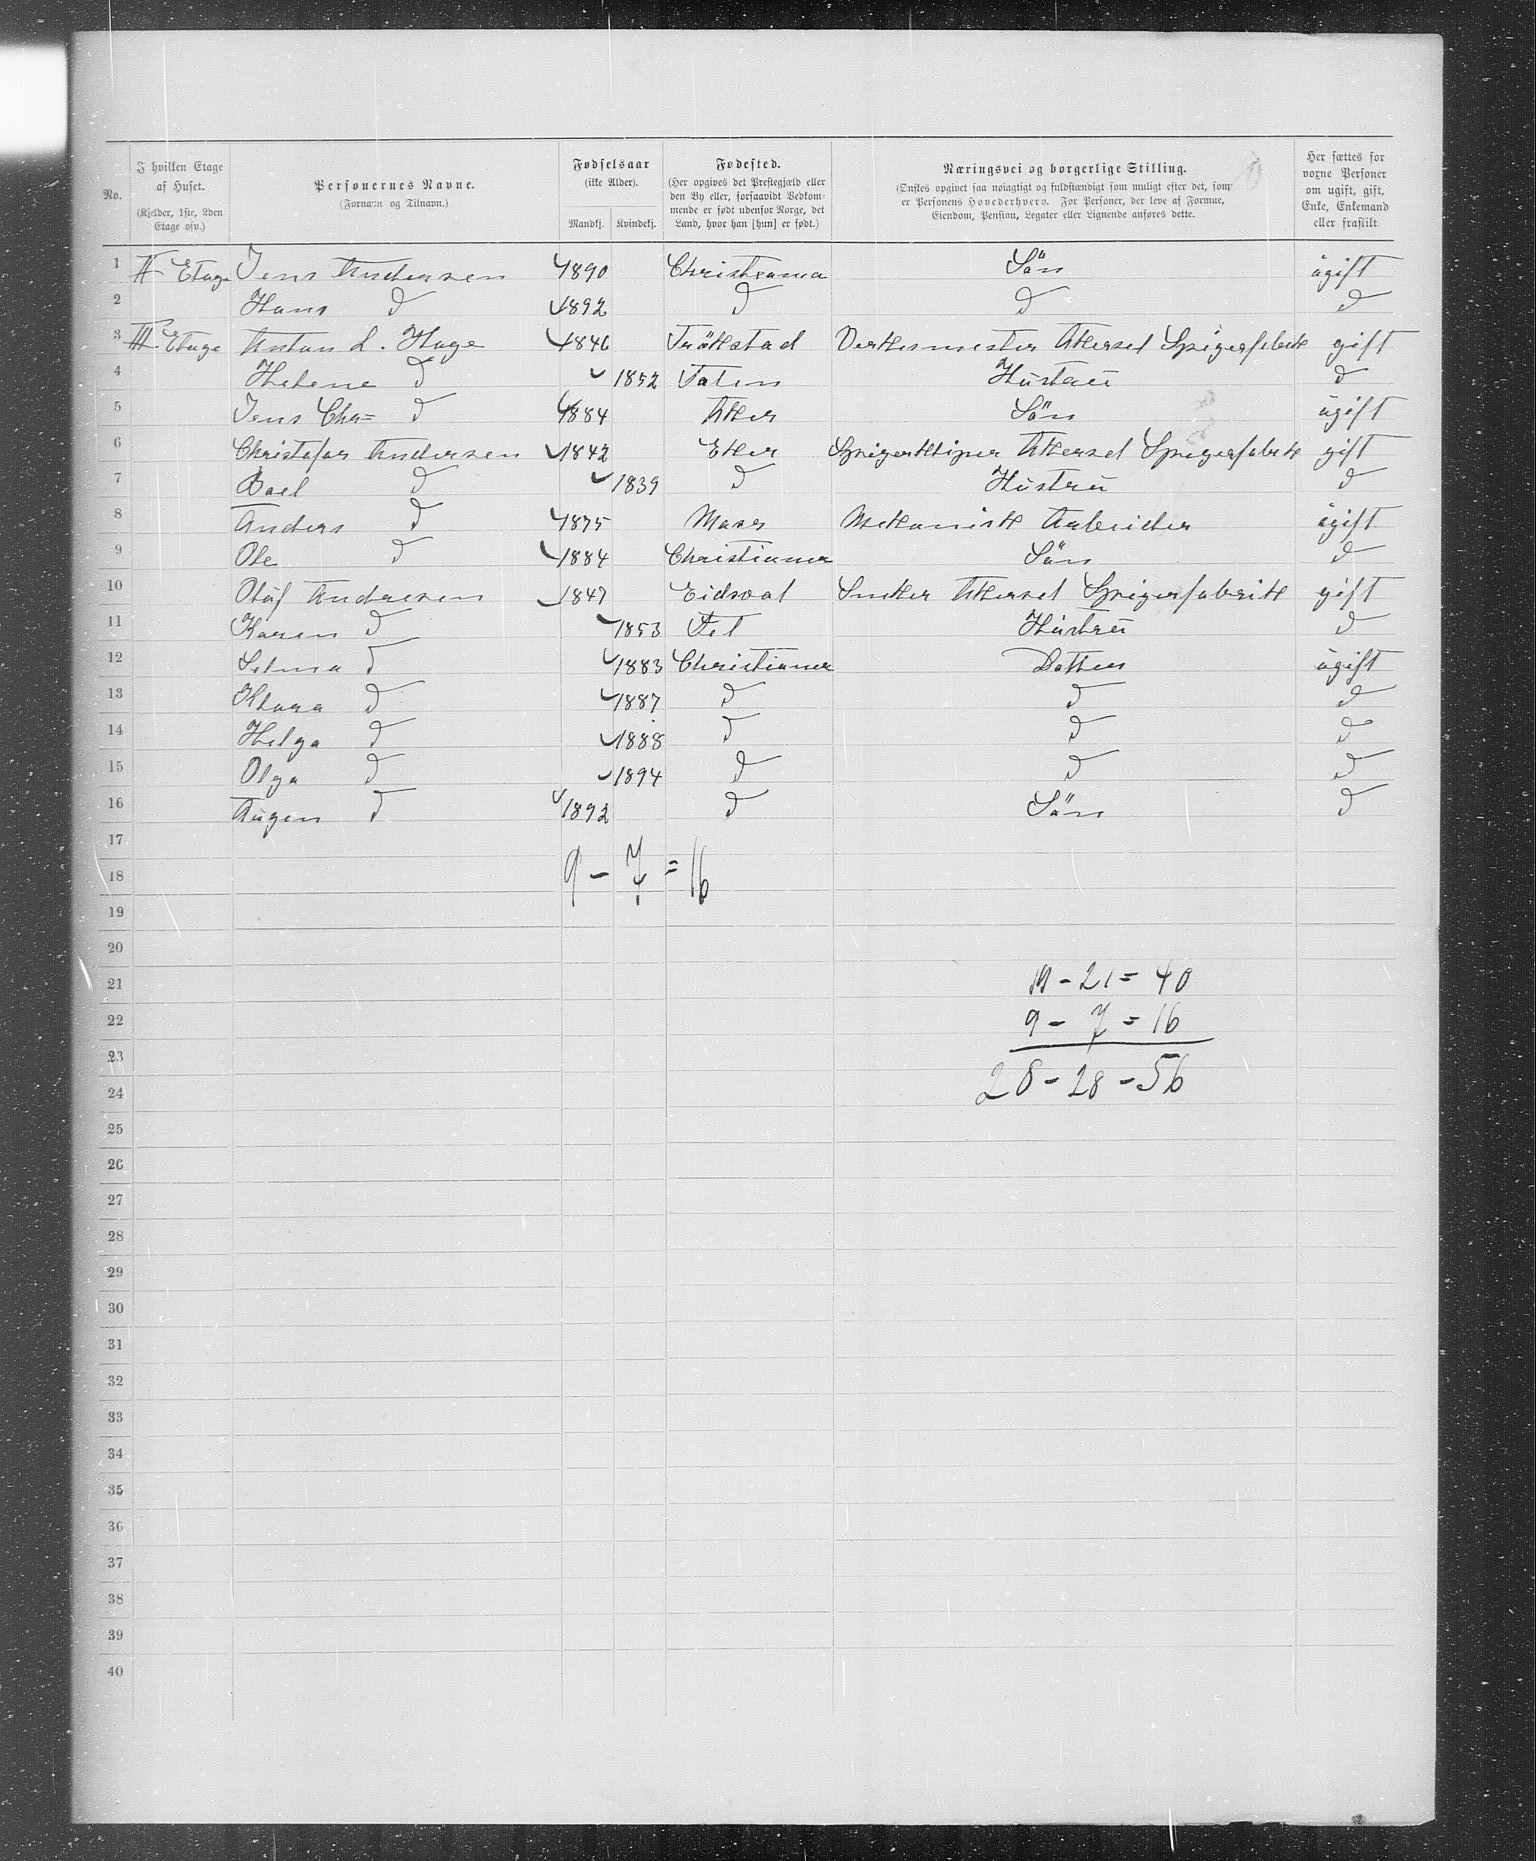 No.
I hvilken Etage af Huset. (Kjelder, 1ste, 2den Etage osv.)
Personernes Navne. (Fornavn og Tilnavn.)
Fødselsaar (ikke Alder). Mandkj. Kvindekj.
Fødested. (Her opgives det Prestegjæld eller den By eller, forsaavidt Vedkommende er født udenfor Norge, det Land, hvor han [hun] er født.)
Næringsvei og borgerlige Stilling. (Ønskes opgivet saa nøiagtigt og fuldstændigt som muligt efter det, som er Personens Hovederhverv. For Personer, der leve af Formue, Eiendom, Pension, Legater eller Lignende anføres dette.
Her sættes for voxne Personer om ugift, gift, Enke, Enkemand eller fraskilt
1 II Etage Jens Andersen 1890 Christiania Sön ugift
2 Hans d 1892 d d d
3 III Etage Anton L. Hage 1846 Trökstad Verkesmester Akersel Spigerfabrik gift
4 Helene d 1852 Toten Hustru d
5 Jens Chr= d 1884 Aker Sön ugift
6 Christofar Andersen 1842 Eker Spigerklipper Akersel Spigerfabrik gift
7 Boel d 1839 d Hustru d
8 Anders d 1875 Moss Mekanisk Arbeider ugift
9 Ole d 1884 Christiania Sön d
10 Oluf Andresen 1847 Eidsvol Smeker Akersel Spigerfabrik gift
11 Karen d 1853 Fet Hustru d
12 Selma d 1883 Christiania Datter ugift
13 Klara d 1887 d d d
14 Helga d 1888 d d d
15 Olga d 1894 d d d
16 Augen d 1892 d Sön d
17
18 9 - 7 = 16
19
20
21 19 - 21 = 40
22 9 - 7 = 16
23
24 28 - 28 - 56
25
26
27
28
29
30
31
32
33
34
35
36
37
38
39
40